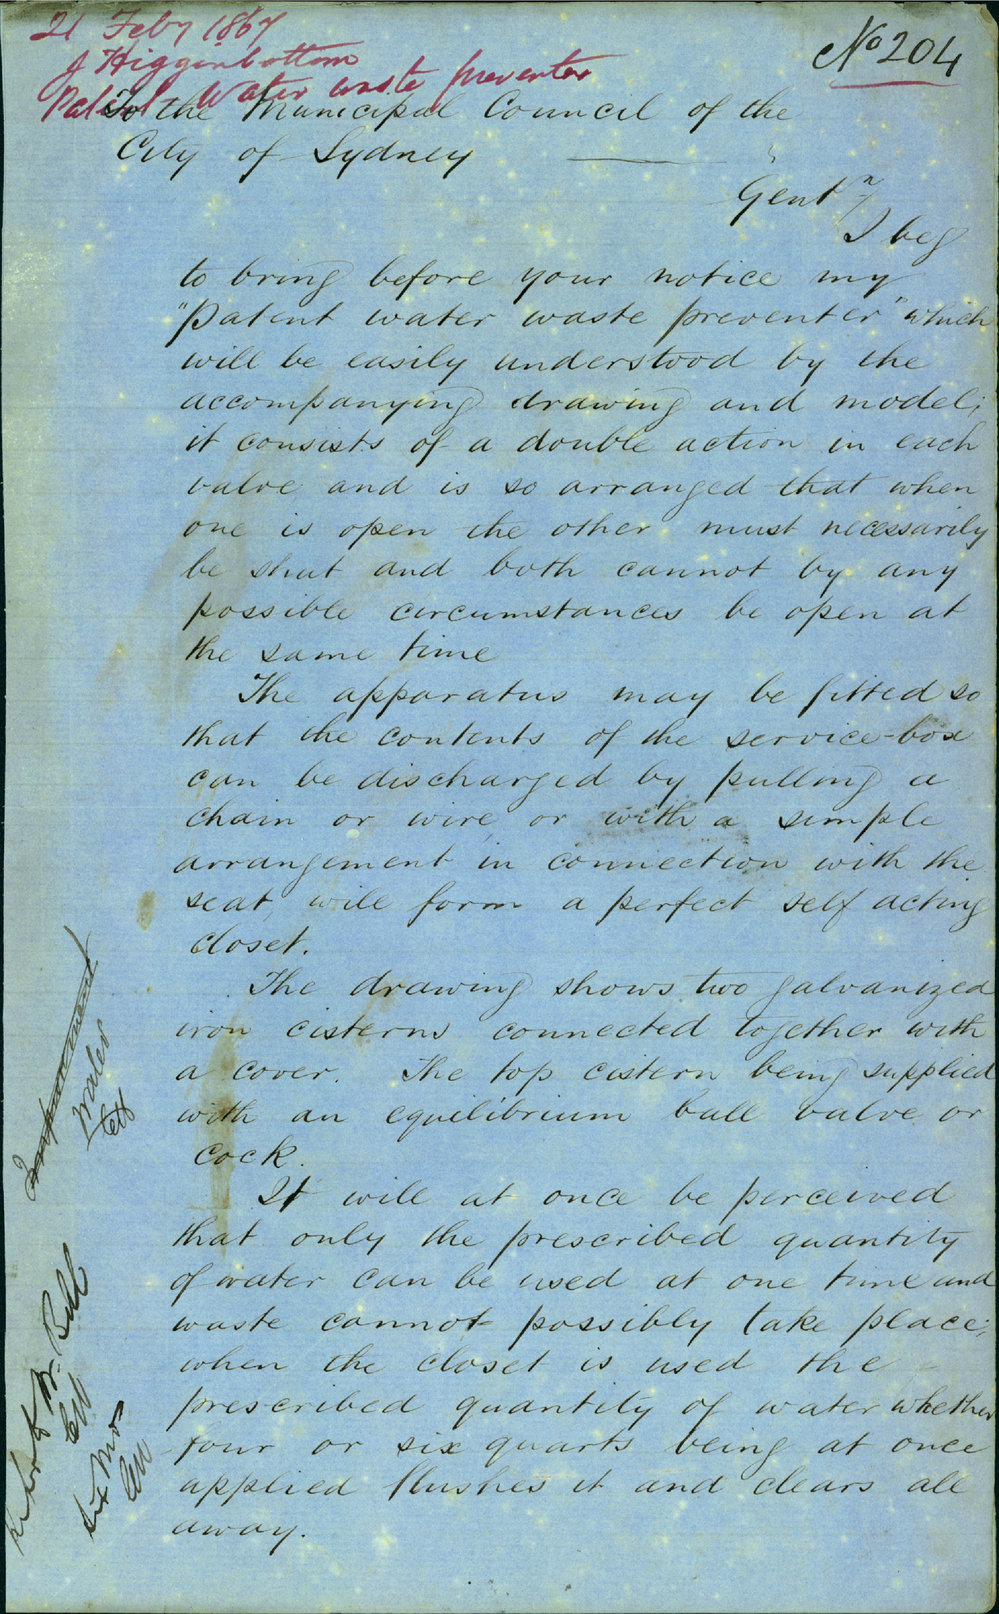 21 Feby 1867
J Higginbottom
Patent Water waste preventer
No 204
To the Municipal Council of the
City of Sydney
Gentn
I beg
to bring before your notice my
"Patent water waste preventer" which
will be easily understood by the
accompanying drawing and model;
it consists of a double action in each
valve and is so arranged that when
one is open the other must necessarily
be shut and both cannot by any
possible circumstances be open at
the same time
The apparatus may be fitted so
that the contents of the service-box
can be discharged by pulling a
chain or wire, or with a simple
arrangement in connection with the
seat, will form a perfect self acting
closet.
The drawing shows two galvanized
iron cisterns connected together with
a cover. The top cistern being supplied
with an equilibrium ball valve or
cock.
It will at once be perceived
that only the prescribed quantity
of water can be used at one time and
waste cannot possibly take place;
when the closet is used the
prescribed quantity of water whether
four or six quarts being at once
applied flushes it and clears all
away.
Improvement
Water
Refer to Mr. Bell